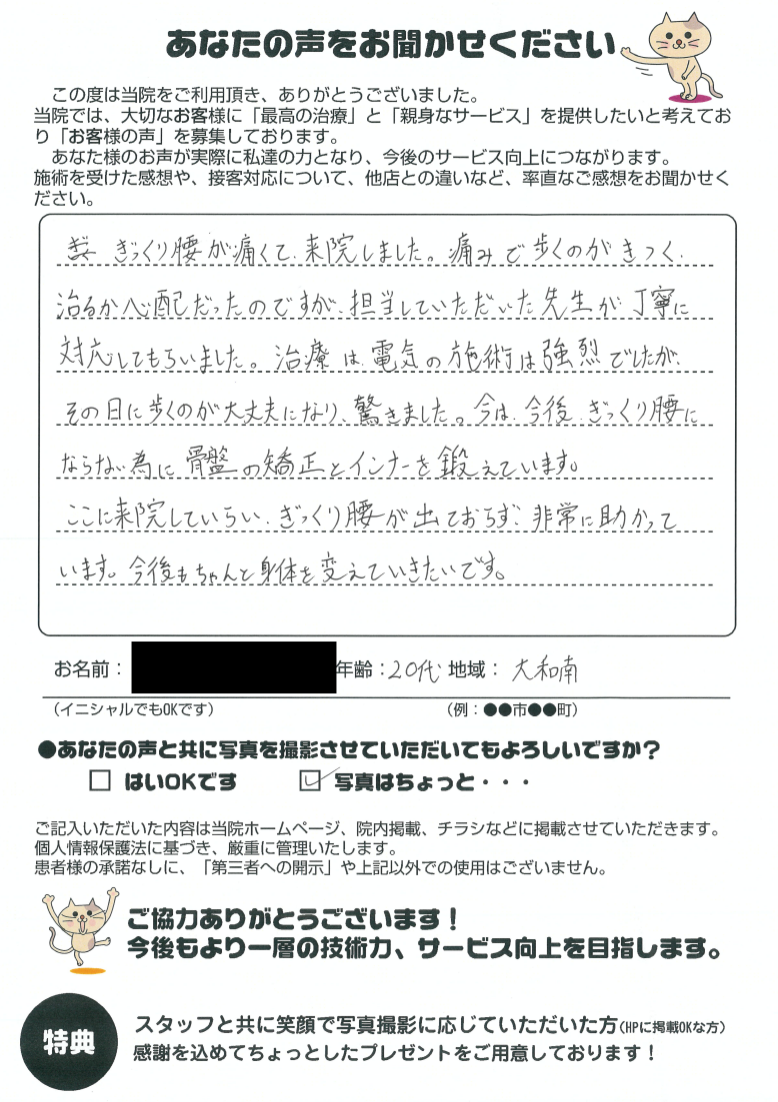 あなたの声をお聞かせください
この度は当院をご利用頂き、ありがとうございました。
当院では、大切なお客様に「最高の治療」と「親身なサービス」を提供したいと考えてお
り「お客様の声」を募集しております。
あなた様のお声が実際に私達の力となり、今後のサービス向上につながります。
施術を受けた感想や、接客対応について、他店との違いなど、率直なご感想をお聞かせく
ださい。
ぎっくり腰が痛くて、来院しました。痛みで歩くのがきつく、
治るか心配だったのですが、担当していただいた先生が丁寧に
対応してもらいました。治療は、電気の施術は強烈でしたが、
その日に歩くのが大丈夫になり、驚きました。今は、今後、ぎっくり腰に
ならない為に骨盤の矯正とインナーを鍛えています。
ここに来院していらい、ぎっくり腰が出ておらず、非常に助かって
います。今後もちゃんと身体を変えていきたいです。
お名前： 年齢：20代 地域：大和南
（イニシャルでもOKです） （例：●●市●●町）
●あなたの声と共に写真を撮影させていただいてもよろしいですか？
はいOKです 写真はちょっと・・・
ご記入いただいた内容は当院ホームページ、院内掲載、チラシなどに掲載させていただきます。
個人情報保護法に基づき、厳重に管理いたします。
患者様の承諾なしに、「第三者への開示」や上記以外での使用はございません。
ご協力ありがとうございます！
今後もより一層の技術力、サービス向上を目指します。
特典
スタッフと共に笑顔で写真撮影に応じていただいた方（HPに掲載OKな方）
感謝を込めてちょっとしたプレゼントをご用意しております！